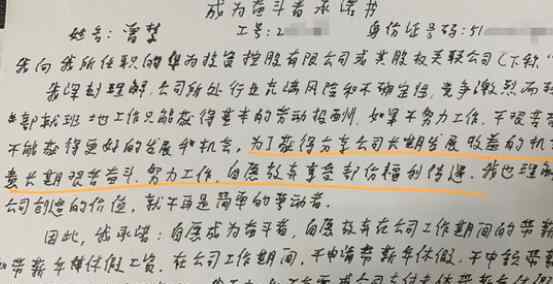 成为奋斗者承诺书
姓名:曾梦 工号:2 身份证号码:51
我向我所任职的华为投资控股有限公司或其股权关联公司(下称,“
我深刻理解,公司所处行业充满风险和不确定性,竞争激烈而残
部就班地工作只能获得基本的劳动报酬,如果不努力工作,不艰苦奋
不能获得更好的发展和机会,为了获得分享公司长期发展收益的机
要长期艰苦奋斗、努力工作,自愿放弃享受部份福利待遇。我也理解
公司创造的价值,就不再是简单的劳动者。
因此,我承诺:自愿成为奋斗者,自愿放弃在公司工作期间的带薪
和带薪年休假工资。在公司工作期间,不申请带薪年休假,不申领带薪